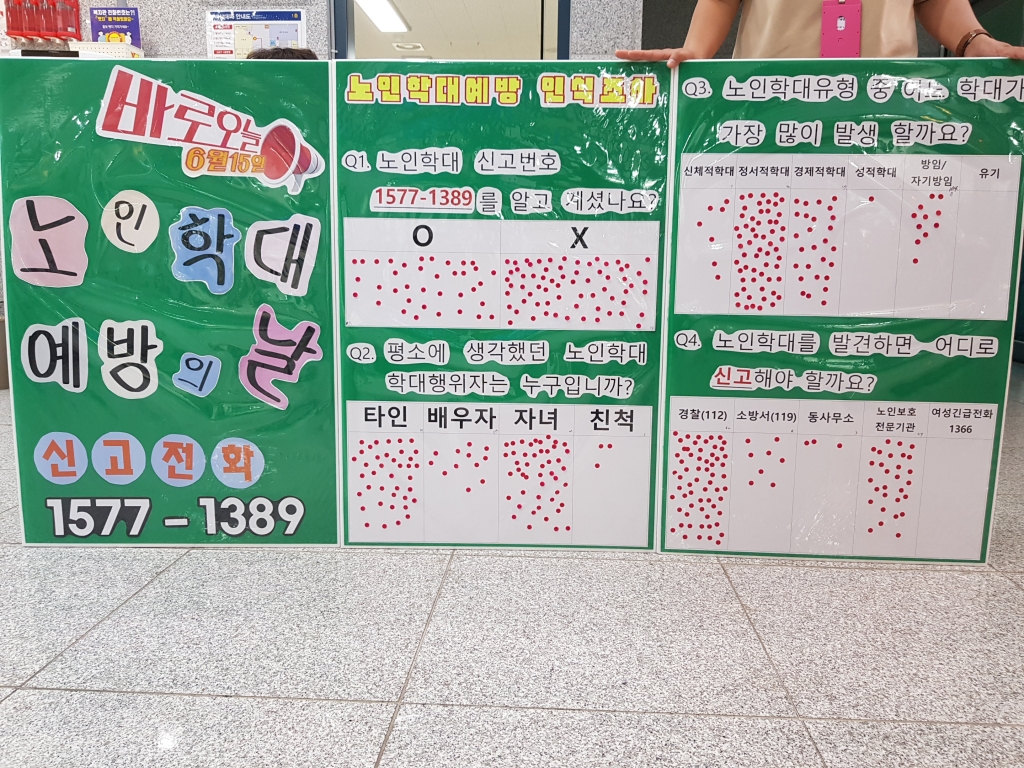 바로오늘
6월15일
노인학대
예방의 날
신고전화
1577-1389
노인학대예방 인식조사
Q1. 노인학대 신고번호
1577-1389를 알고 계셨나요?
O X
Q2. 평소에 생각했던 노인학대
학대행위자는 누구입니까?
타인 배우자 자녀 친척
Q3. 노인학대유형 중 어느 학대가
가장 많이 발생 할까요?
신체적학대 정서적학대 경제적학대 성적학대 방임/
자기방임 유기
Q4. 노인학대를 발견하면 어디로
신고해야 할까요?
경찰(112) 소방서(119) 동사무소 노인보호
전문기관 여성긴급전화
1366